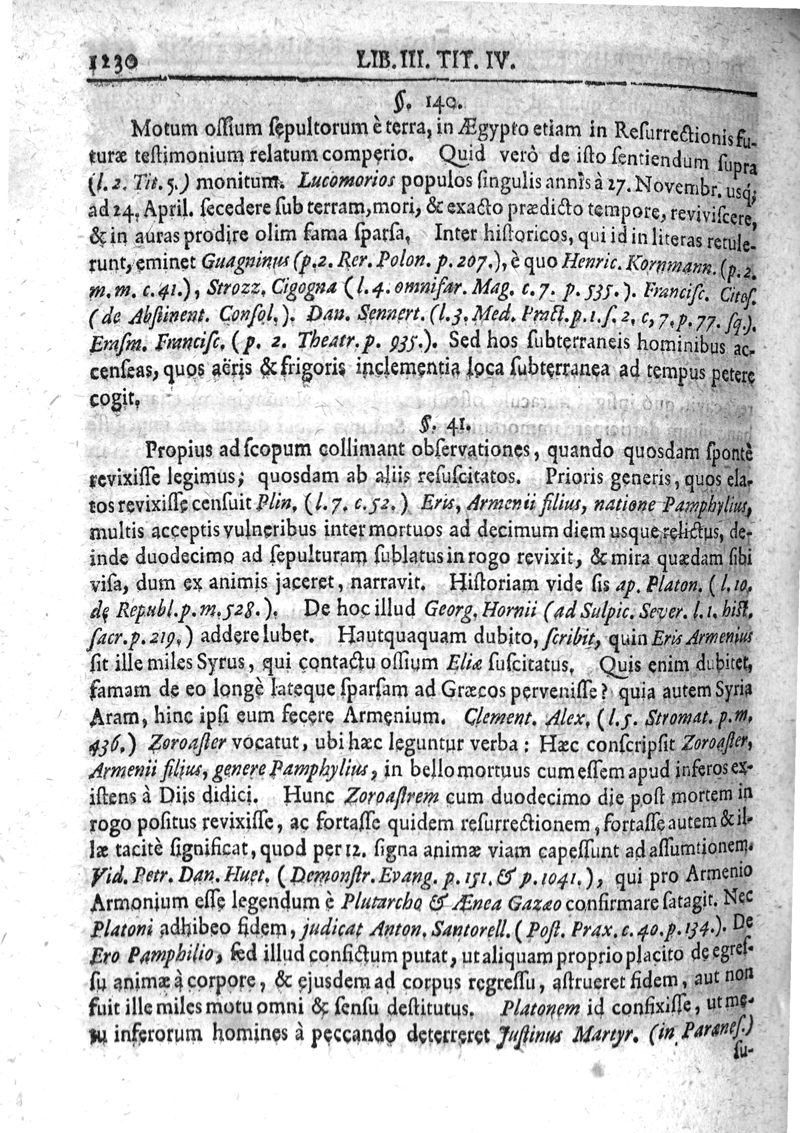 1230 LIB. III. TIT. IV.
§. 140.
Motum ossium sepultorum è terra, in Ægypto etiam in Resurrectionis fu-
turæ testimonium relatum comperio. Quid verò de isto sentiendum supra
(l. 2. Tit. 5.) monitum. Lucomorios populos singulis annis à 27. Novembr. usq;
ad 24. April. secedere sub terram, mori, & exacto prædicto tempore, reviviscere,
& in auras prodire olim fama sparsa. Inter historicos, qui id in literas retule-
runt, eminet Guagninus (p. 2. Rer. Polon. p. 207.), è quo Henric. Kornmann. (p. 2.
m. m. c. 41.), Strozz. Cigogna (l. 4. omnifar. Mag. c. 7. p. 535.). Francisc. Citos.
(de Abstinent. Consol.). Dan. Sennert. (l. 3. Med. Pract. p. 1. s. 2. c, 7. p. 77. sq.).
Erasm. Francisc. (p. 2. Theatr. p. 935.). Sed hos subterraneis hominibus ac-
censeas, quos aëris & frigoris inclementia loca subterranea ad tempus petere
cogit.
§. 41.
Propius ad scopum collimant observationes, quando quosdam spontè
revixisse legimus; quosdam ab aliis resuscitatos. Prioris generis, quos ela-
tos revixisse censuit Plin. (l. 7. c. 52.) Eris, Armenii filius, natione Pamphylius,
multis acceptis vulneribus inter mortuos ad decimum diem usque relictus, de-
inde duodecimo ad sepulturam sublatus in rogo revixit, & mira quædam sibi
visa, dum ex animis jaceret, narravit. Historiam vide sis ap. Platon. (l. 10.
de Republ. p. m. 528.). De hoc illud Georg. Hornii (ad Sulpic. Sever. l. 1. hist.
sacr. p. 219.) addere lubet. Hautquaquam dubito, scribit, quin Eris Armenius
sit ille miles Syrus, qui contactu ossium Eliæ suscitatus. Quis enim dubitet,
famam de eo longè lateque sparsam ad Græcos pervenisse? quia autem Syria
Aram, hinc ipsi eum fecere Armenium. Clement. Alex. (l. 5. Stromat. p. m.
436.) Zoroaster vocatur, ubi hæc leguntur verba: Hæc conscripsit Zoroaster,
Armenii filius, genere Pamphylius, in bello mortuus cum essem apud inferos ex-
istens à Diis didici. Hunc Zoroastrem cum duodecimo die post mortem in
rogo positus revixisse, ac fortasse quidem resurrectionem, fortasse autem & il-
læ tacitè significat, quod per 12. signa animæ viam capessunt ad assumtionem.
Vid. Petr. Dan. Huet. (Demonstr. Evang. p. 151. & p. 1041.), qui pro Armenio
Armonium esse legendum è Plutarcho & Ænea Gazao confirmare satagit. Nec
Platoni adhibeo fidem, judicat Anton. Santorell. (Post. Prax. c. 40. p. 134.). De
Ero Pamphilio, sed illud confictum putat, ut aliquam proprio placito de egres-
su animæ à corpore, & ejusdem ad corpus regressu, astrueret fidem, aut non
fuit ille miles motu omni & sensu destitutus. Platonem id confixisse, ut me-
tu inferorum homines à peccando deterreret Justinus Martyr. (in Paranes.)
su-